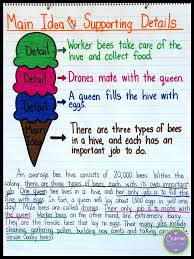 Main Idea & Supporting Details
Detail → Worker bees take care of the
hive and collect food.
Detail → Drones mate with the queen.
Detail → A queen fills the hive with
eggs.
Main Idea → There are three types of bees
in a hive, and each has an
important job to do.
An average bee hive consists of 20,000 bees. Within the
colony, there are three types of bees, each with its own important
job. One queen bee lives in each hive, and her only job is to fill the
hive with eggs. In fact, a queen will lay about 1,500 eggs in just one
day! Male bees are called drones. Their only job is to mate with the
queen. Worker bees on the other hand, are extremely busy.
They are female bees that lay no eggs. Their many jobs include
cleaning, gathering pollen, building new combs and taking care of
larvae (baby bees).